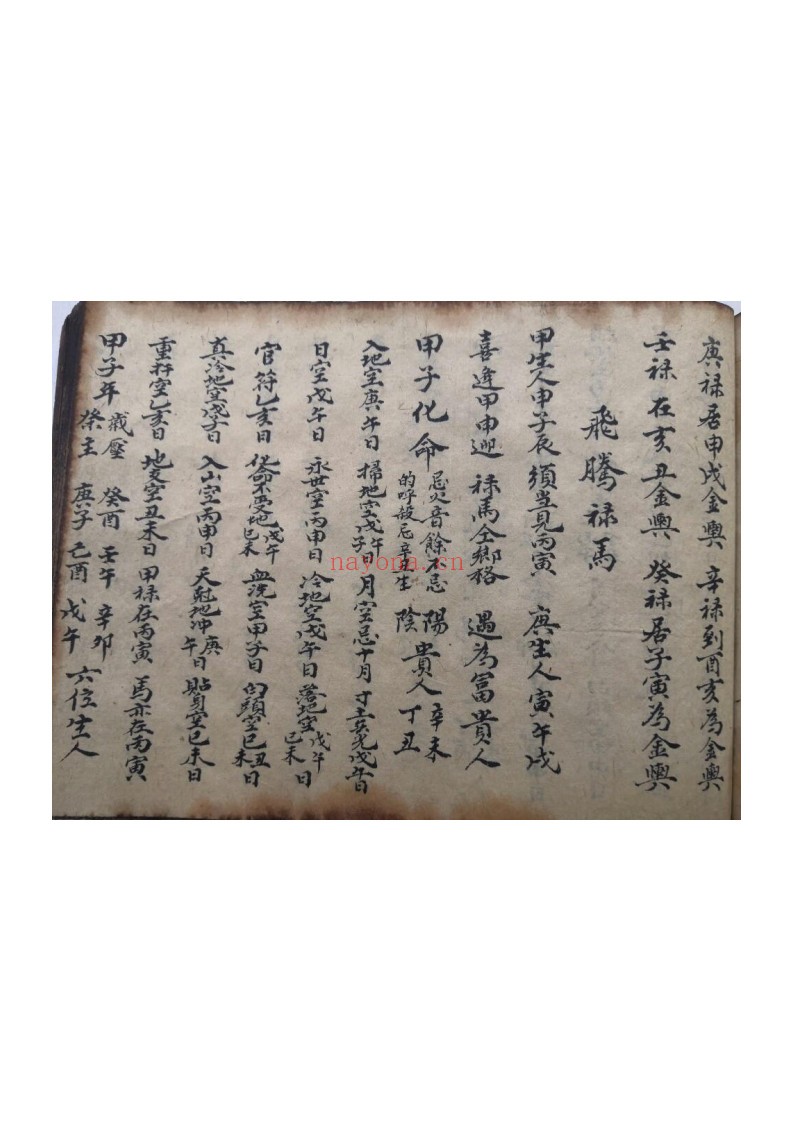 庚禄居申戌金輿 辛禄到酉亥為金輿
壬禄在亥丑金輿 癸禄居子寅為金輿
飛騰禄馬
甲生人申子辰須豈見丙寅 庚生人寅午戌
喜逢甲申迎 禄馬全鄉格 遇為富貴人
甲子化命 忌火音餘不忌 的呼殺忌辛丑生 陽陰貴人 辛未 丁丑
入地空庚午日 掃地空戊午子日 月空忌十月
日空戊午日 永世空丙申日 冷地空戊午日 落地空戊午己未日
官符乙亥日 化命不受地戊午己未 血洗空甲子日 的頭空己丑未日
真冷地空戊子日 入山空丙申日 天尅地冲庚午日 貼身空己未日
重杵空乙亥日 地支空丑未日 甲禄在丙寅 馬亦在丙寅
甲子年 歲壓祭主 癸酉 壬午 辛卯 庚子 己酉 戊午 六位生人
nayona.cn